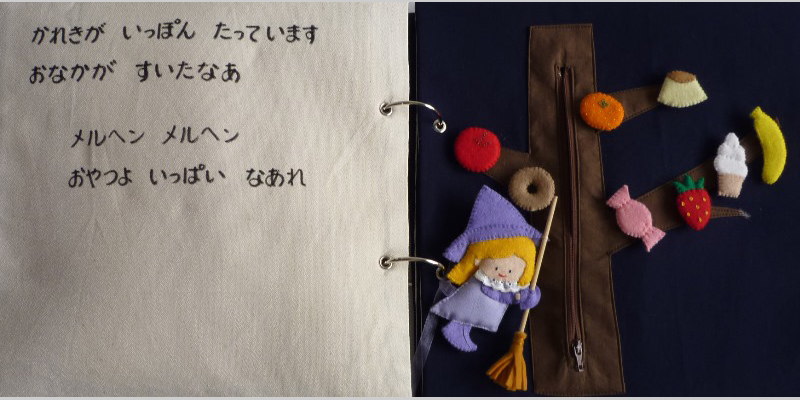 かれきが いっぽん たっています
おなかが すいたなあ
メルヘン メルヘン
おやつよ いっぱい なあれ